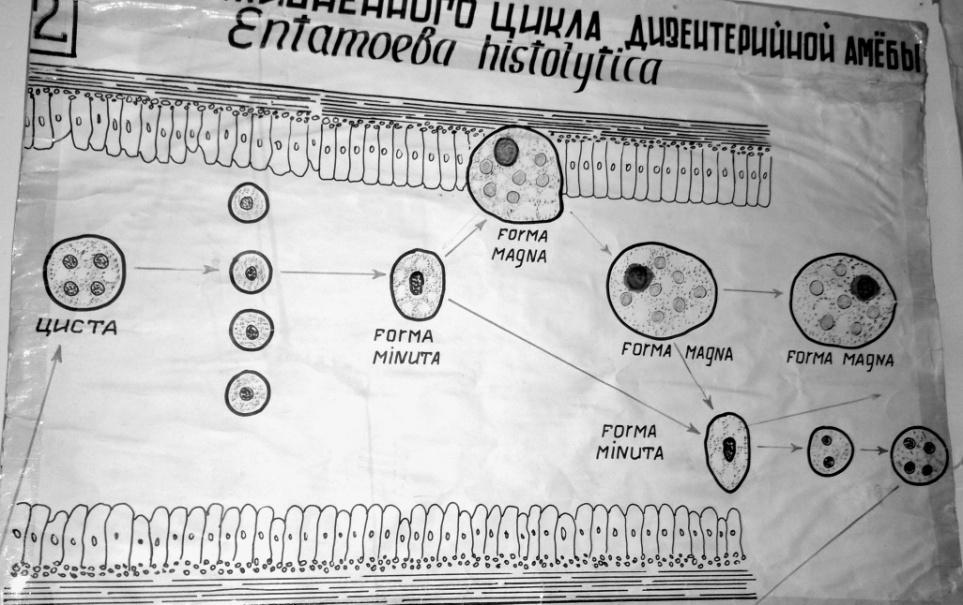 2
ЦИКЛА ДИЗЕНТЕРИЙНОЙ АМЁБЫ
Entamoeba histolytica
FORMA
MAGNA
ЦИСТА
FORMA
MINUTA
FORMA MAGNA
FORMA MAGNA
FORMA
MINUTA